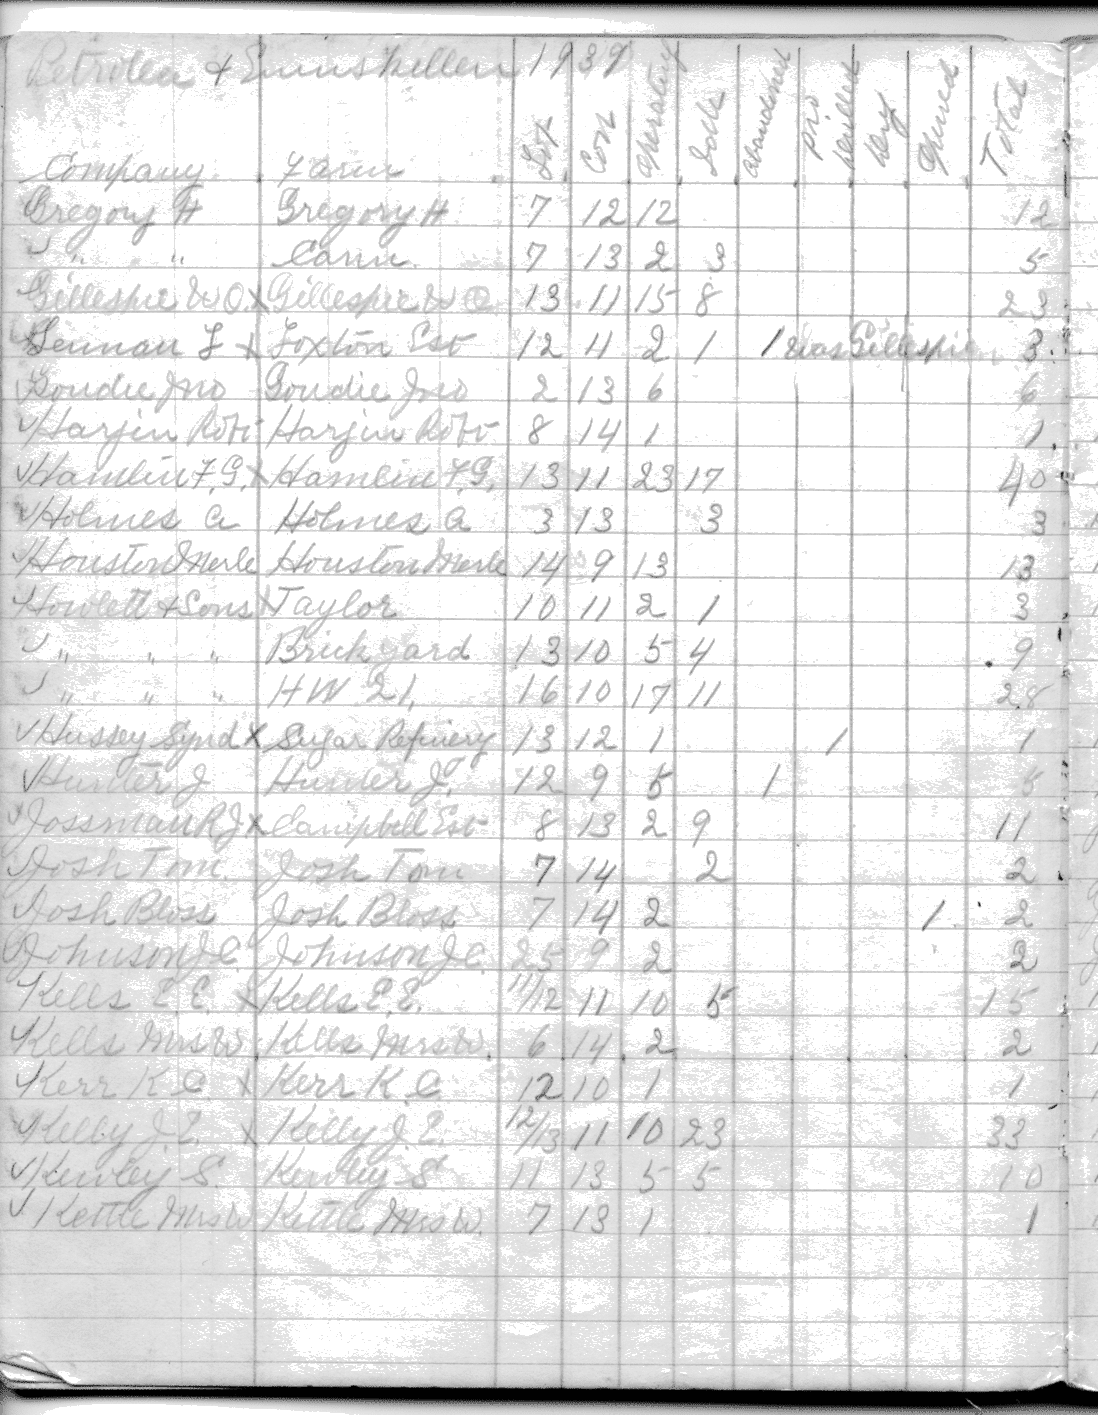 Petrolea & Enniskillen 1939
Company Farm Lot Con Operating Idle abandoned pro drilled dry Opened Total
Gregory H Gregory H 7 12 12 12
✓ " " Cann. 7 13 2 3 5
Gillespie W O. x Gillespie W O 13 11 15 8 23
F x Foxton Est 12 11 2 1 1 was Gillespie 3
Goudie Jno Goudie Jno 2 13 6 6
✓ Harjin Robt Harjin Robt 8 14 1 1
✓ Hamlin F.G. x Hamlin F.G. 13 11 23 17 40
✓ Holmes A Holmes A 3 13 3 3
✓ Houston Merle Houston Merle 14 9 13 13
✓ Howlett & Sons x Taylor 10 11 2 1 3
✓ " " " Brickyard 13 10 5 4 9
✓ " " " HW 21, 16 10 17 11 28
✓ Hussey Synd x Sugar Refinery 13 12 1 1 1
✓ Hunter J Hunter J. 12 9 5 1 5
✓ Jossman R J x Campbell Est 8 13 2 9 11
Josh Tom. Josh Tom 7 14 2 2
✓ Josh Bloss Josh Bloss 7 14 2 1 2
✓ Johnson J.C. Johnson J C. 25 9 2 2
✓ Kells E E. x Kells E.E. 11/12 11 10 5 15
✓ Kells Mrs W. Kells Mrs W. 6 14 2 2
✓ Kerr K C. x Kerr K.C. 12 10 1 1
✓ Kelly J.E. x Kelly J.E. 12/13 11 10 23 33
✓ Kewley S. Kewley S 11 13 5 5 10
✓ Kettle Mrs W Kettle Mrs W. 7 13 1 1